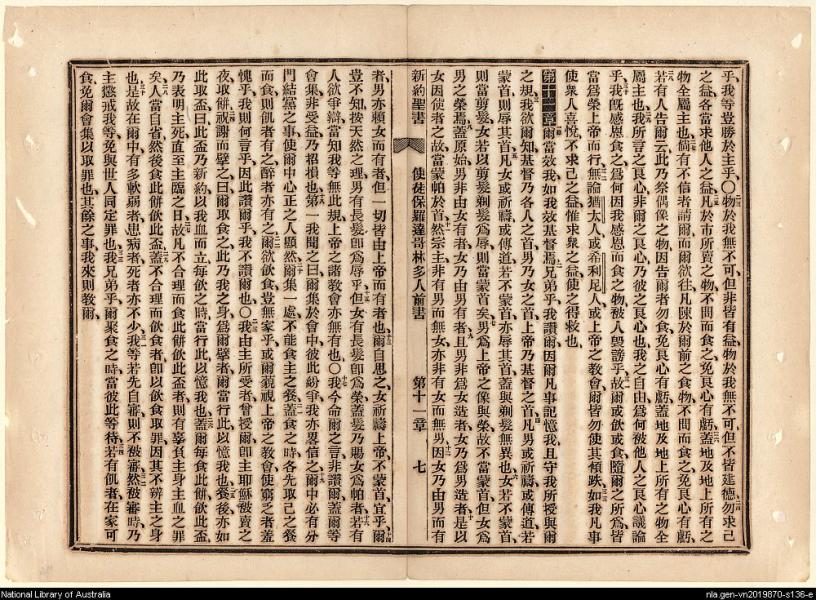 乎我等豈勝於主乎〇物於我無不可但非皆有益物於我無不可但不皆建德勿求己
之益各當求他人之益凡於市所賣之物不問而食之免良心有虧蓋地及地上所有之
物全屬主也倘有不信者請爾而爾欲往凡陳於爾前之食物不問而食之免良心有虧
若有人告爾云此乃祭偶像之物因告爾者勿食免良心有虧蓋地及地上所有之物全
屬主也我所言之良心非爾之良心乃彼之良心也我之自由爲何被他人之良心議論
乎我旣感恩食之爲何因我感恩而食之物被人毀謗乎故爾或飲或食隨爾之所爲皆
當爲榮上帝而行無論猶太人或希利尼人或上帝之教會爾皆勿使其傾跌如我凡事
使衆人喜悅不求己之益惟求衆之益使之得救也
第十一章爾當效我如我效基督焉兄弟乎我讚爾因爾凡事記憶我且守我所授與爾
之規我欲爾知基督乃各人之首男乃女之首上帝乃基督之首凡男或祈禱或傳道若
蒙首則辱其首凡女或祈禱或傳道若不蒙首亦辱其首蓋與剃髮無異也女若不蒙首
則當剪髮女若以剪髮剃髮爲辱則當蒙首矣男爲上帝之像與榮故不當蒙首但女爲
男之榮焉蓋原始男非由女有者女乃由男有者且男非爲女造者女乃爲男造者是以
女因使者之故當蒙帕於首然宗主非有男而無女亦非有女而無男因女乃由男而有
新約聖書 使徒保羅達哥林多人前書 第十一章 七
者男亦賴女而有者但一切皆由上帝而有者也爾自思之女祈禱上帝不蒙首宜乎爾
豈不知按天然之理男有長髮卽爲辱乎但女有長髮卽爲榮蓋髮乃賜女爲帕者若有
人欲爭辯當知我等無此規上帝之諸教會亦無有也〇我今命爾之言非讚爾蓋爾等
會集非受益乃招損也第一我聞之曰爾集於會中彼此紛爭我亦畧信之爾中必有分
門結黨之事使爾中心正之人顯然爾集一處不能食主之餐蓋食之時各先取己之餐
而食則飢者有之醉者亦有之爾欲飲食豈無家乎或爾藐視上帝之教會使窮乏者羞
愧乎我則何言乎因此讚爾乎我不讚爾也〇我由主所受者曾授爾卽主耶穌被賣之
夜取餅祝謝而擘之曰爾取食之此乃我之身爲爾擘者爾當行此以憶我也餐後亦如
此取盃曰此盃乃新約以我血而立每飲之時當行此以憶我也蓋爾每食此餅飲此盃
乃表明主死直至主臨之日故凡不合理而食此餅飲此盃者則有辜負主身主血之罪
矣人當自省然後食此餅飲此盃蓋不合理而飲食者卽以飲食取罪因其不辨主之身
也是故在爾中有多軟弱者患病者死者亦不少我等若先自審則不被審然被審時乃
主懲戒我等免與世人同定罪也我兄弟乎爾聚食之時當彼此等待若有飢者在家可
食免爾會集以取罪也其餘之事我來則教爾
National Library of Australia
nla.gen-vn2019870-s136-e